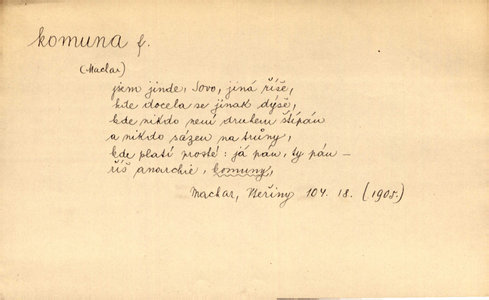 komuna f.
(Machar)
jsem jinde, Jovo, jiná říše,
kde docela se jinak dýše,
kde nikdo není druhem štípán
a nikdo sázen na trůny,
kde platí prosté: já pán, ty pán –
říš anarchie, komuny,
Machar, Veřiny 104. 18. (1905.)